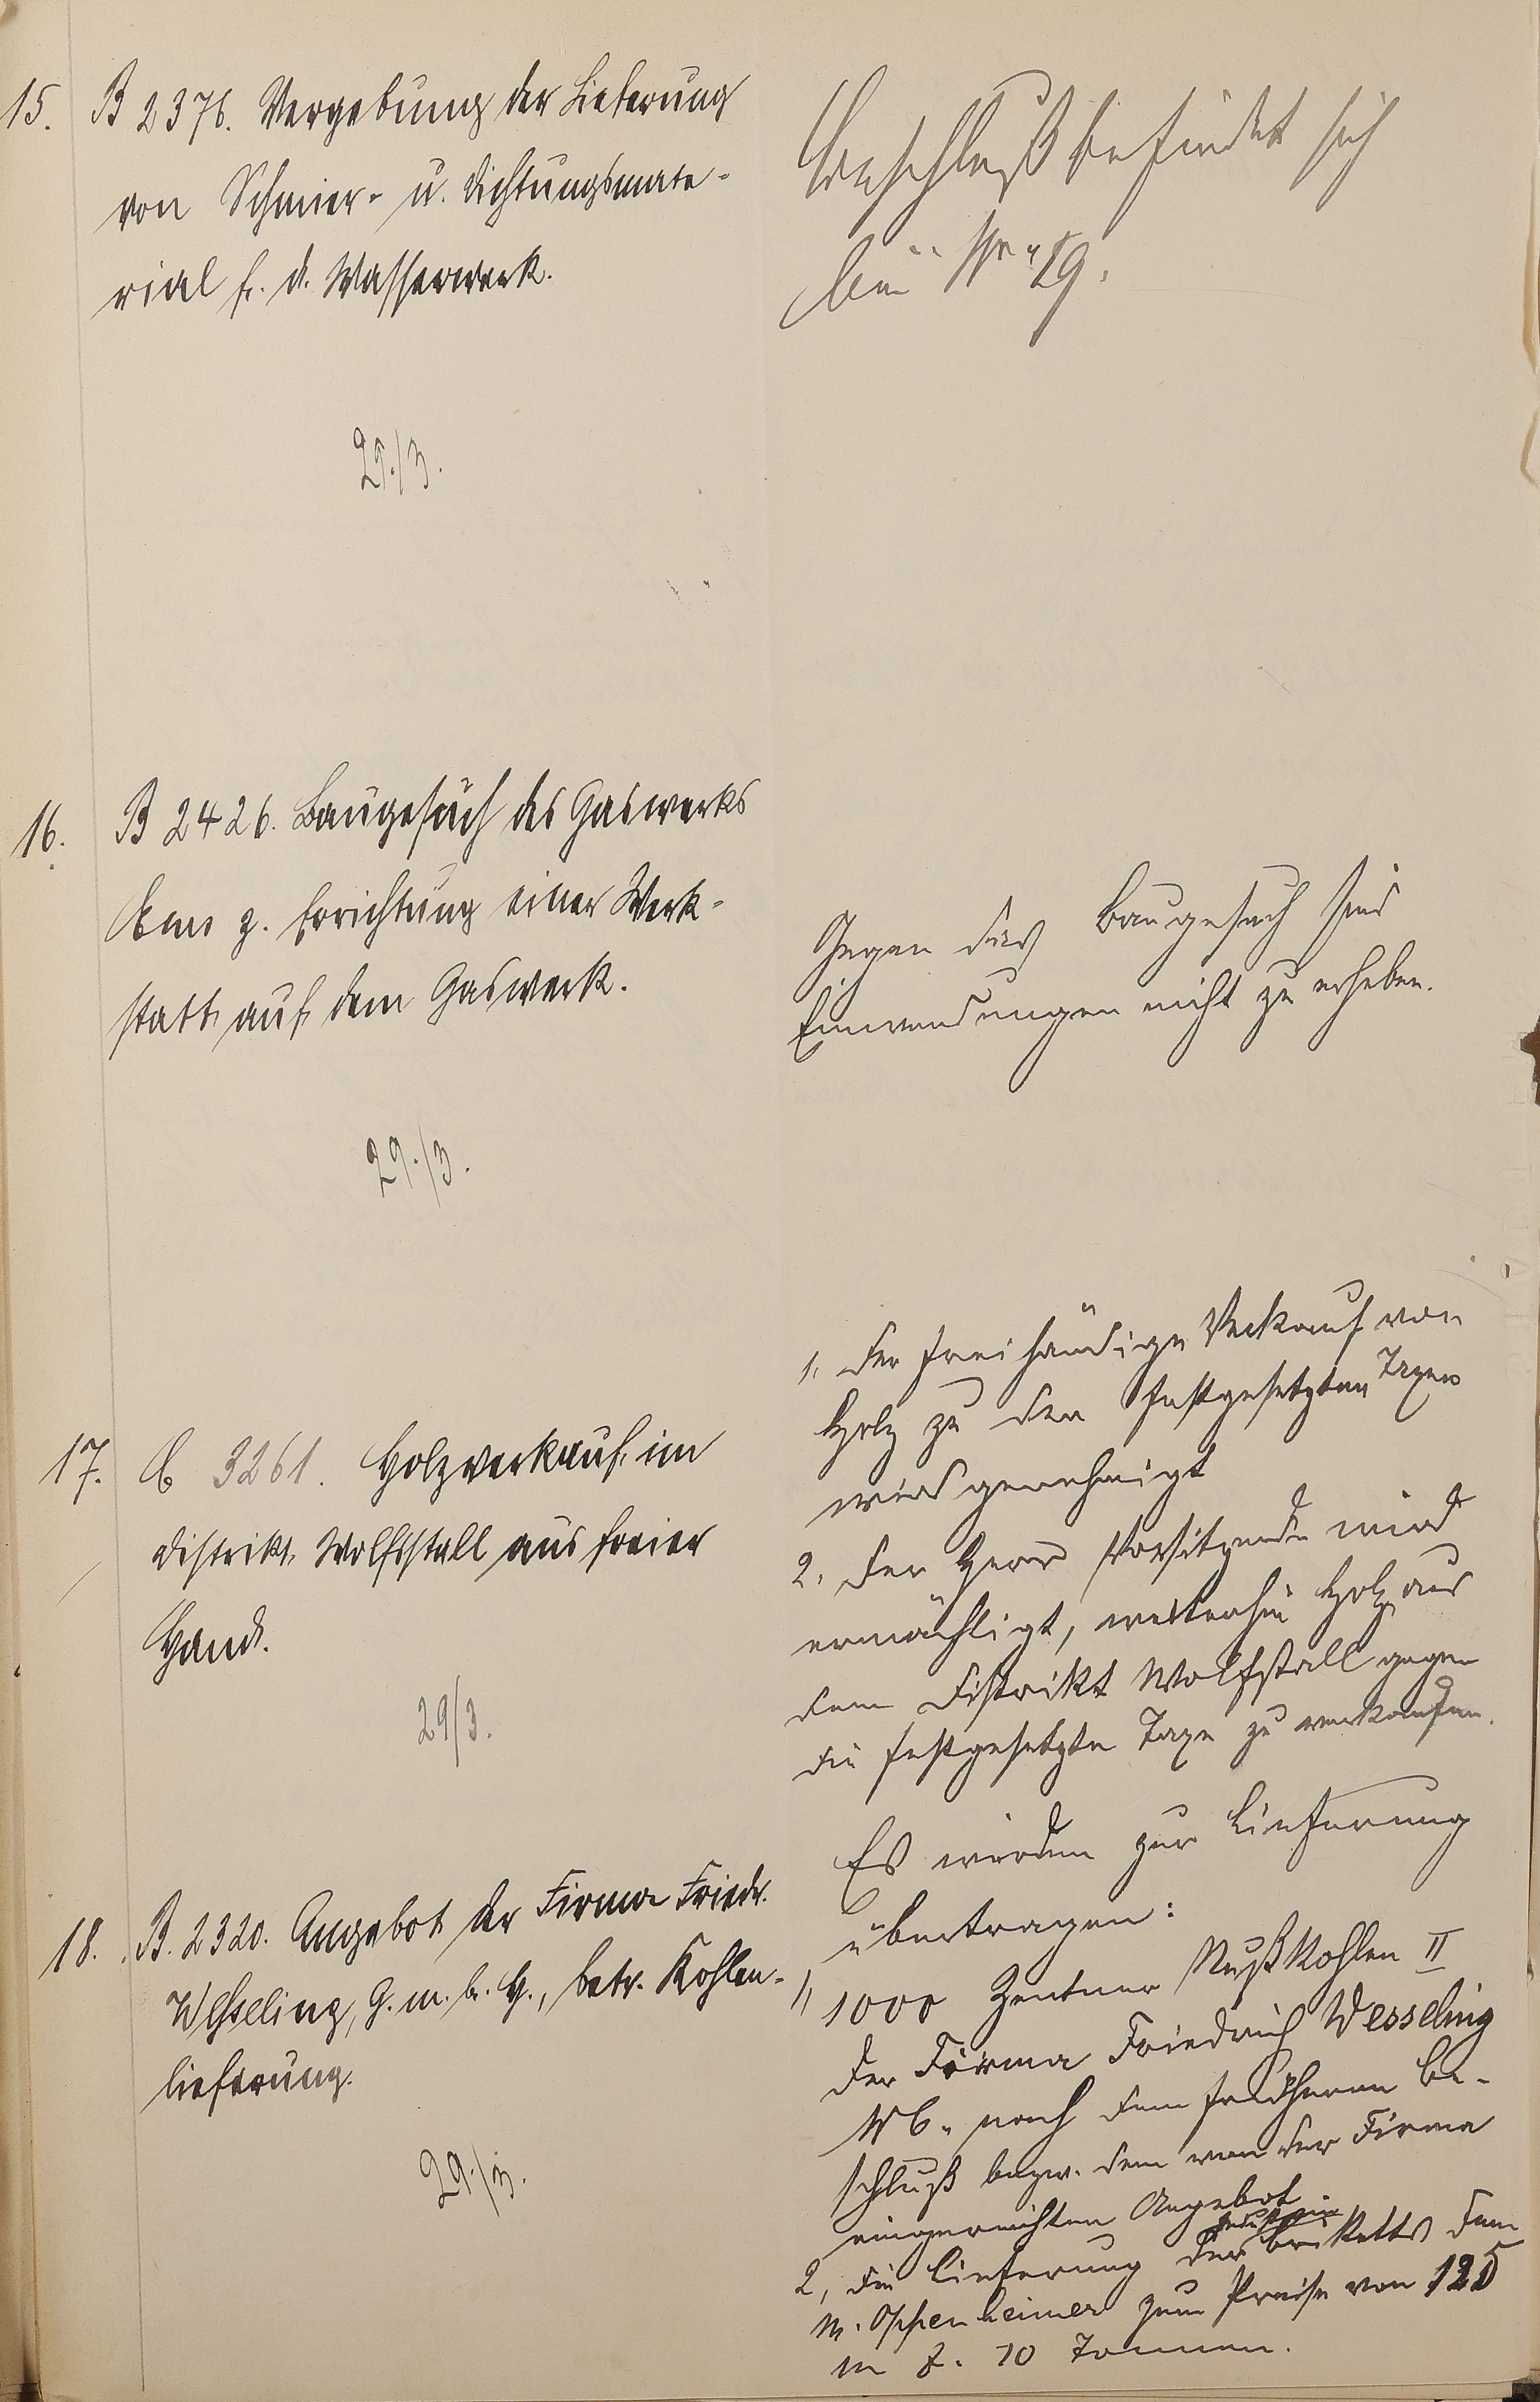 15. B 2376. Vergebung der Lieferung
von Schmier- u. Dichtungsmate-
rial f. d. Wasserwerk.
29./3.
Beschluß befindet sich
bei Nr. 19.
16. B 2426. Baugesuch des Gaswerks
Ems z. Errichtung einer Werk-
statt auf dem Gaswerk.
29./3.
Gegen das Baugesuch sind
Einwendungen nicht zu erheben.
17. C 3261. Holzverkauf im
Distrikt Wolfsstall aus freier
Hand.
29/3.
1. Der freihändige Verkauf von
Holz zu den festgesetzten Taxen
wird genehmigt
2. Der Herr Vorsitzende wird
ermächtigt, weiterhin Holz aus
dem Distrikt Wolfstall gegen
die festgesetzte Taxe zu verkaufen.
18. B. 2320. Angebot der Firma Friedr.
Wesseling, G.m.b.H., betr. Kohlen-
lieferung.
29./3.
Es werden zur Lieferung
übertragen:
1, 1000 Zentner Nußkohlen II
der Firma Friedrich Wesseling
nach dem früheren Be-
schluß bezw. dem von der Firma
eingereichten Angebot
2, die Lieferung der Briketts dem
M. Oppenheimer zum Preise von 125
M f. 10 Tonnen.